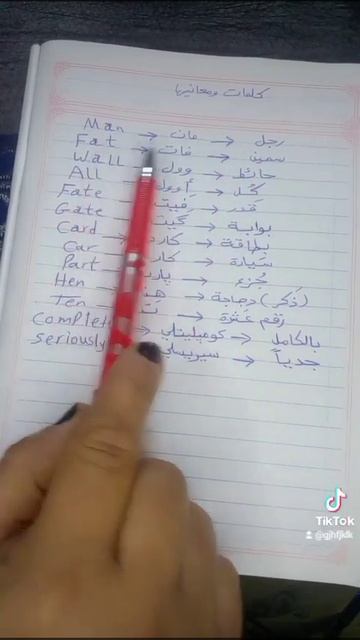 كلمات ومعانيها
Man → مان → رجل
Fat → فات → سمين
Wall وول → حائط
All أوول → كُل
Fate فيت → قَدَر
Gate گيت → بوابة
Card كارد → بطاقة
Car كار → سَيارة
Part پارت → جُزء
Hen هين → دجاجة (ذَكر)
Ten → رقم عَشَرة
complete → كومبليتلي → بالكامل
seriously سيريسلي → جدياً
TikTok
@gjhfjkdk